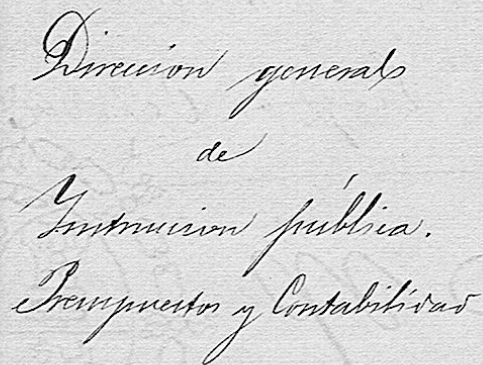 Direccion general
de
Instruccion pública.
Presupuestos y Contabilidad